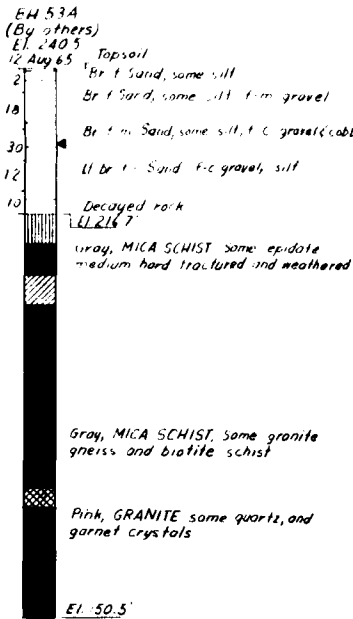 BH 53A
(By others)
El. 240.5
12 Aug 65
Topsoil
2
Br f Sand, some silt
Br f Sand, some silt f-m gravel
18
Br f-m Sand, some silt, f-c gravel, cobb
30
Lt br f- Sand f-c gravel, silt
12
10
Decayed rock
El 216.7
Gray, MICA SCHIST some epidate
medium hard fractured and weathered
Gray, MICA SCHIST, some granite
gneiss and biotite schist
Pink, GRANITE some quartz, and
garnet crystals
El. 150.5